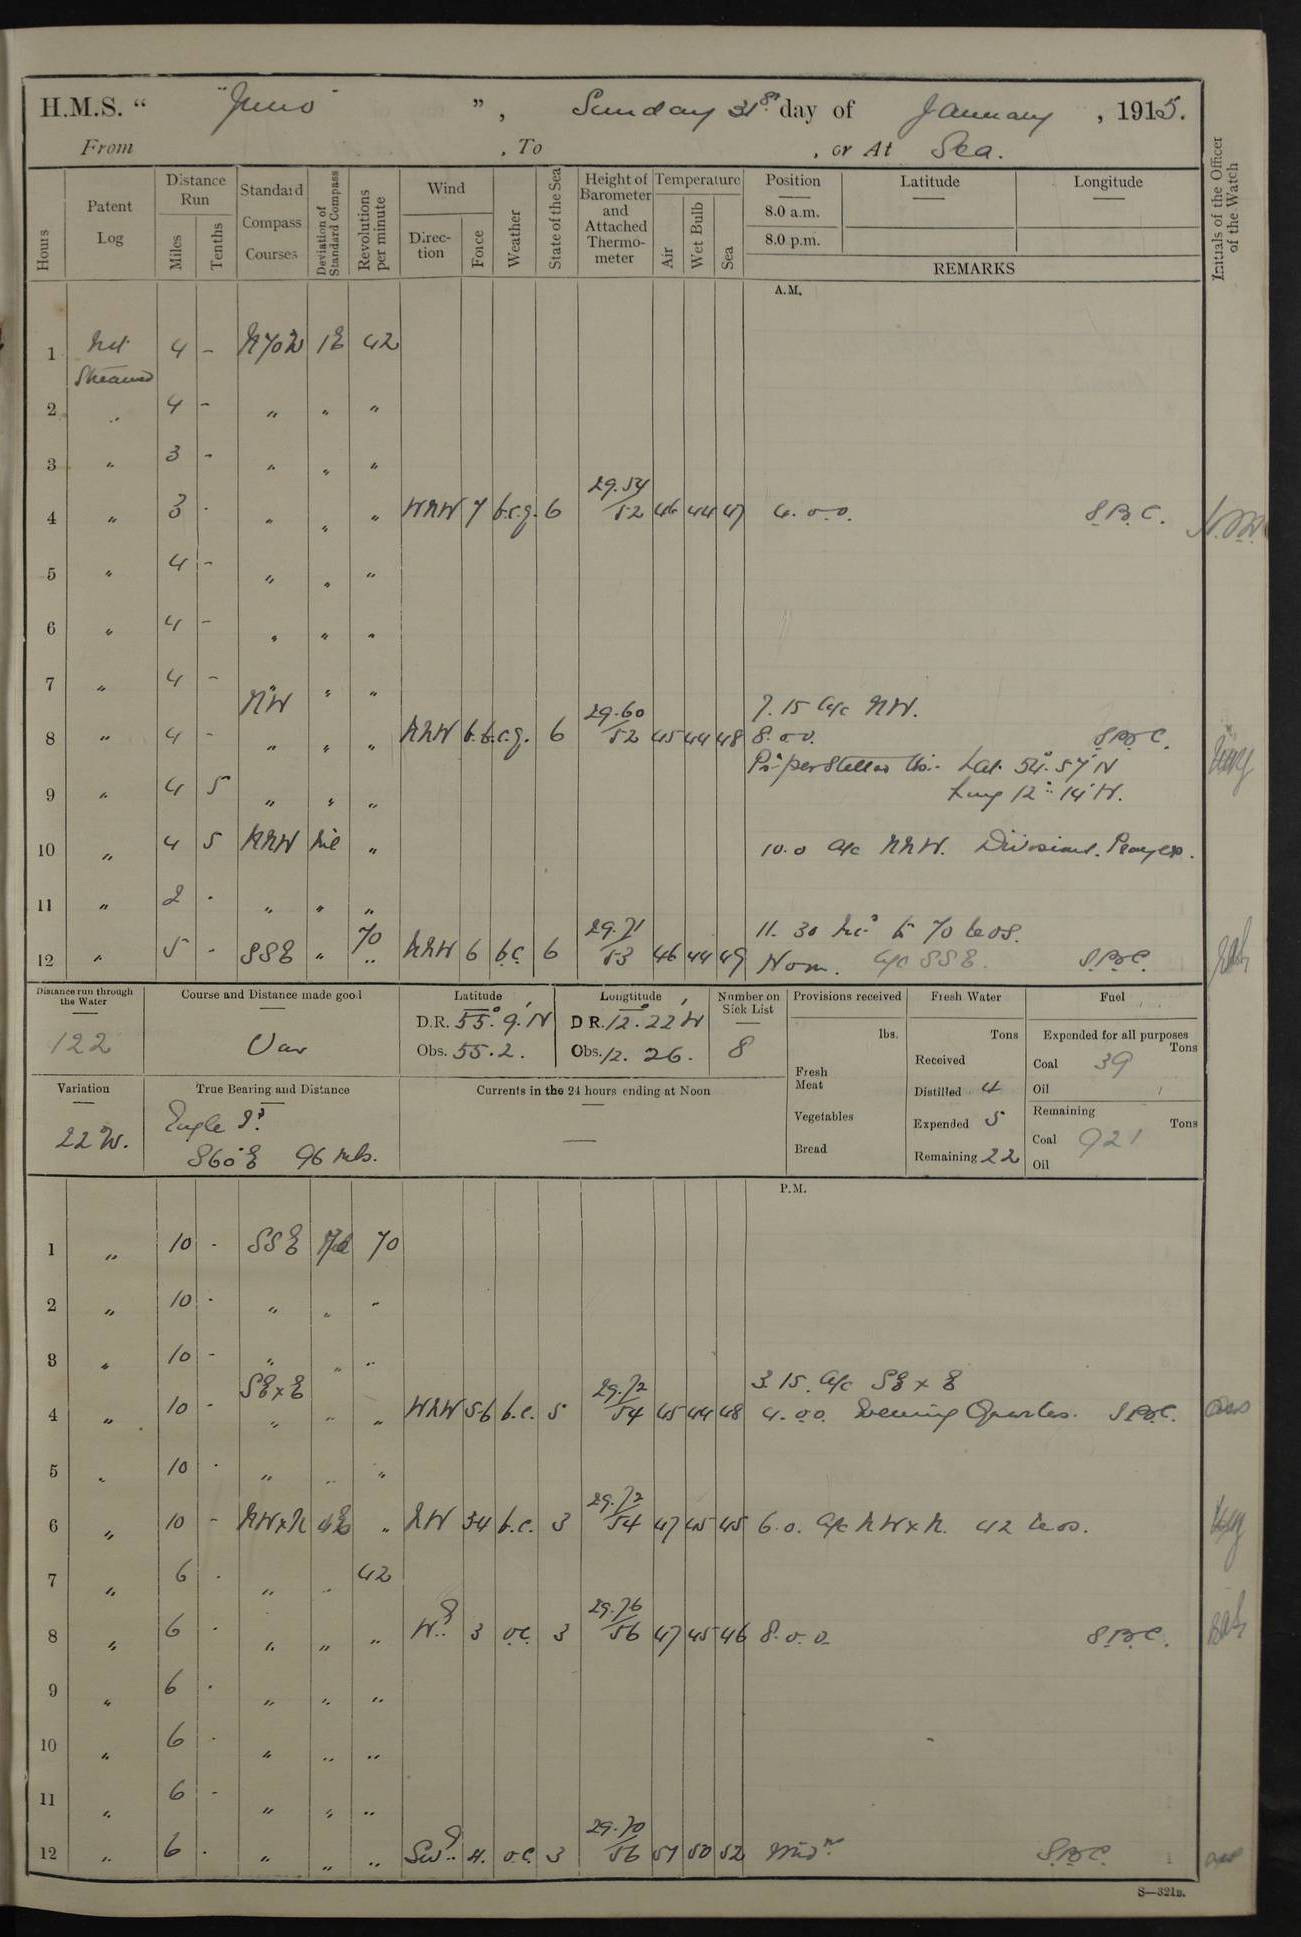 H.M.S. " "Juno" ", Sunday 31st day of January, 1915.
From , To , or At Sea.
Hours
Patent Log
Distance Run
Miles
Tenths
Standard Compass Courses
Deviation of Standard Compass
Revolutions per minute
Wind
Direction
Force
Weather
State of the Sea
Height of Barometer and Attached Thermometer
Temperature
Air
Wet Bulb
Sea
Position
8.0 a.m.
8.0 p.m.
Latitude
Longitude
REMARKS
Initials of the Officer of the Watch
A.M.
1 Not Streamed 4 - N70W 1E 42
2 " 4 - " " "
3 " 3 - " " "
4 " 3 - " " " WNW 7 b.c.q. 6 29.54/52 46 44 47 4.0.0. S.B.C.
5 " 4 - " " "
6 " 4 - " " "
7 " 4 - " " "
NW 7.15 a/c NW.
8 " 4 - " " " NNW 6. b.c.q. 6 29.60/52 45 44 48 8.0.0. S.B.C.
Lat. 54°.57'N
9 " 4 5 " " " Long 12°.14'W.
10 " 4 5 NNW Nil " 10.0 a/c NNW. Divisions. Prayers.
11 " 2 - " " "
11.30 Inc. to 70 revs.
12 " 5 - SSE " 70 NNW 6 b.c. 6 29.71/53 46 44 49 Noon. a/c SSE. S.B.C.
Distance run through the Water
122
Course and Distance made good
Var
Latitude
D.R. 55°.9'.N
Obs. 55.2.
Longtitude
D R. 12°.22'W
Obs. 12. 26.
Number on Sick List
8
Provisions received
lbs.
Fresh Meat
Vegetables
Bread
Fresh Water
Tons
Received
Distilled 4
Expended 5
Remaining 22
Fuel
Expended for all purposes
Tons
Coal 39
Oil
Remaining
Tons
Coal 921
Oil
Variation
22°W.
True Bearing and Distance
Eagle Id.
S60°E 96 mls.
Currents in the 24 hours ending at Noon
P.M.
1 " 10 - SSE 70
2 " 10 - " " "
3 " 10 - " " "
SE x E 3.15. a/c SE x E
4 " 10 - " " " WNW 5-6 b.c. 5 29.72/54 45 44 48 4.0.0. Evening Quarters. S.B.C.
5 " 10 - " " "
6 " 10 - NWxN 4E " NW 34 b.c. 3 29.72/54 47 45 45 6.0. a/c NWxN. 42 revs.
7 " 6 - " " 42
8 " 6 - " " " Wd. 3 o.c. 3 29.76/56 47 45 46 8.0.0. S.B.C.
9 " 6 - " " "
10 " 6 - " " "
11 " 6 - " " "
12 " 6 - " " " SWd. 4. o.c. 3 29.70/56 51 50 52 Midt. S.B.C.
S—321B.